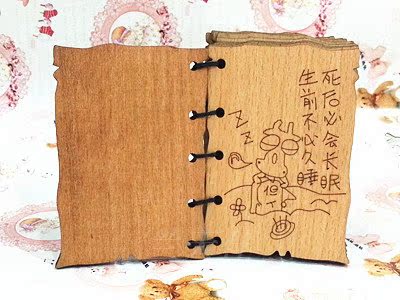 生前不必久睡
死后必会长眠
Z Z